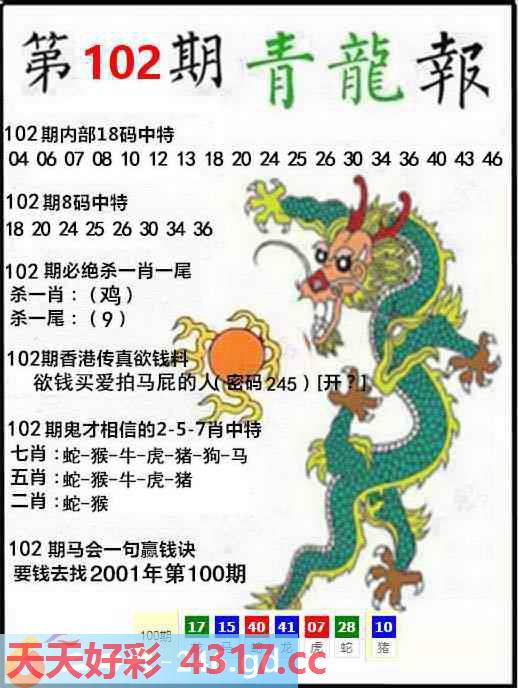 第102期 青龍報
102期内部18码中特
04 06 07 08 10 12 13 18 20 24 25 26 30 34 36 40 43 46
102期8码中特
18 20 24 25 26 30 34 36
102期必绝杀一肖一尾
杀一肖：（鸡）
杀一尾：（9）
102期香港传真欲钱料
欲钱买爱拍马屁的人(密码245）[开？]
102期鬼才相信的2-5-7肖中特
七肖：蛇-猴-牛-虎-猪-狗-马
五肖：蛇-猴-牛-虎-猪
二肖：蛇-猴
102期马会一句赢钱诀
要钱去找2001年第100期
100期 17 15 40 41 07 28 10
马 龙 虎 蛇 猪
天天好彩 4317.cc